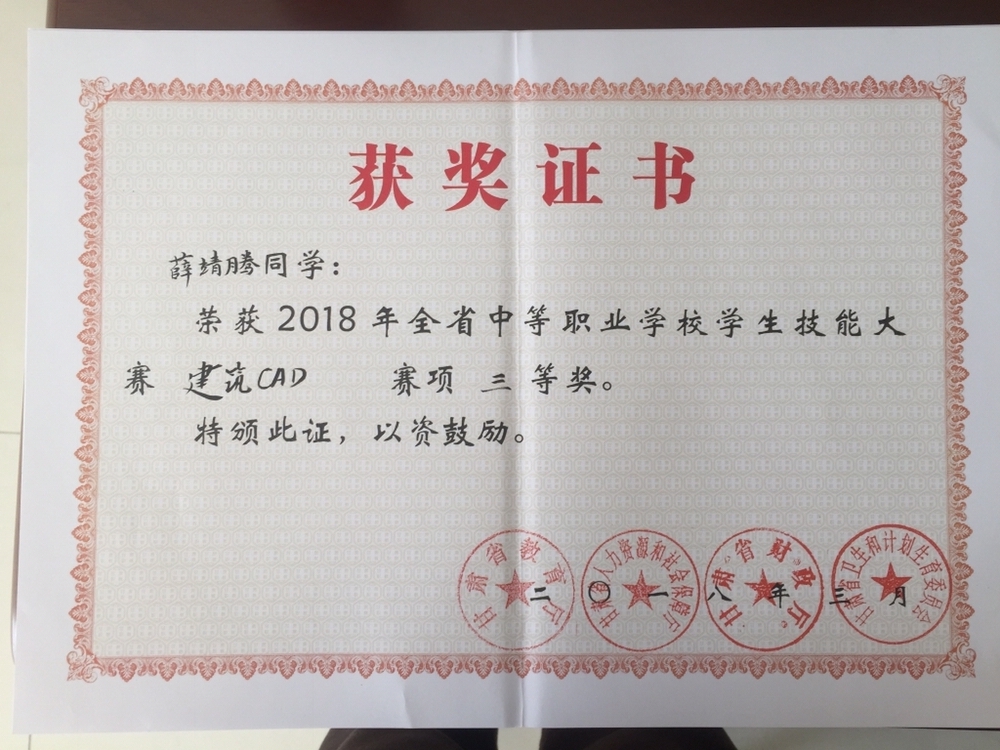 获奖证书
薛靖腾同学：
荣获2018年全省中等职业学校学生技能大
赛 建筑CAD 赛项 三 等奖。
特颁此证，以资鼓励。
甘肃省教育厅
甘肃省人力资源和社会保障厅
甘肃省财政厅
甘肃省卫生和计划生育委员会
二〇一八年三月